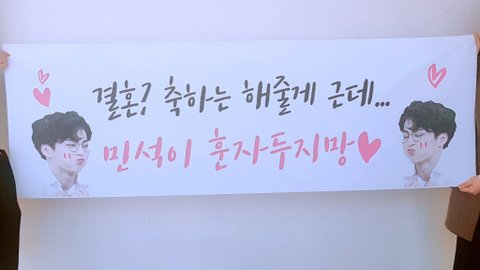 결혼? 축하는 해줄게 근데...
민석이 훈자두지망♥